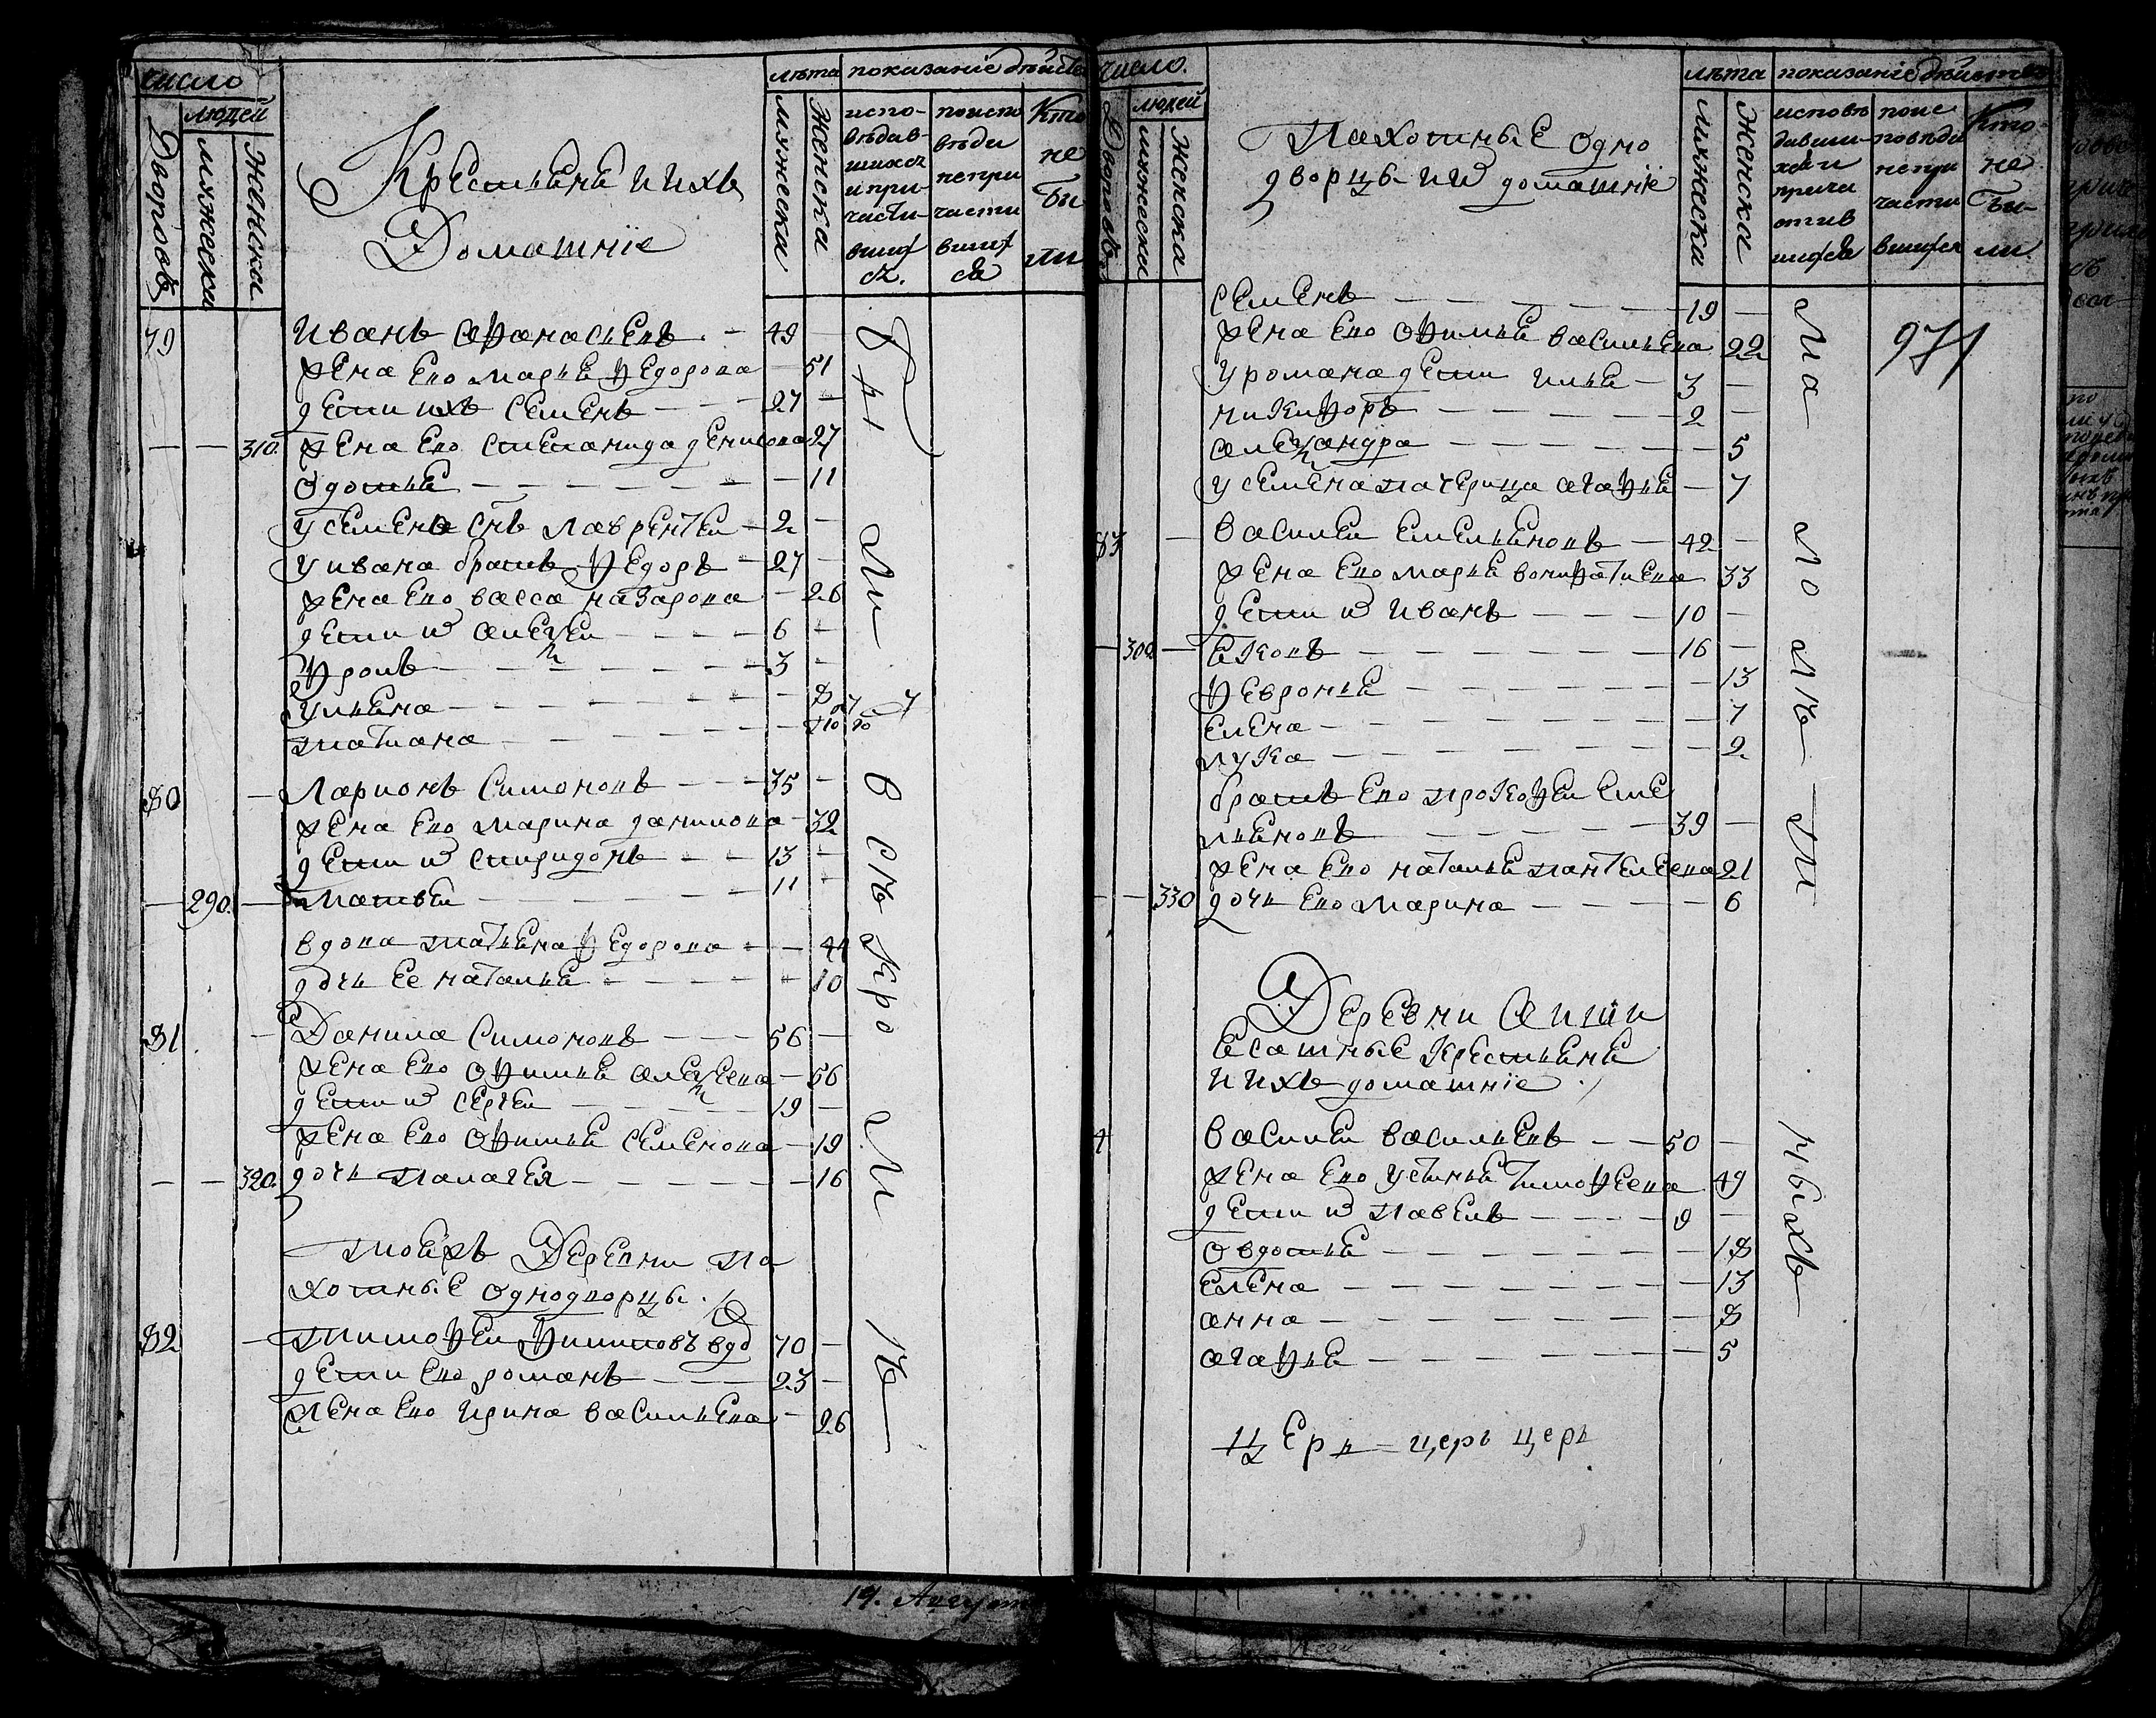 число
людей
Дворовъ
мужеска
женска
Крестьянѣ и ихъ
Домашніе
лѣта
мужеска
женска
показаніе дѣйств
испо-
вѣдав-
шихся
и при-
части-
вших
ся.
по испо
вѣди
непри
части
вших
ся
Кто
не
бы
ли
79 иванъ афанасьевъ 49
жена ево марья федорова 51
дети ихъ семенъ 27
310. жена ево степанида денисова 27
одотья 11
у семена снъ лаврентеи 2
у ивана братъ федоръ 27
жена ево васса назарова 26
дети их алексеи 6
фролъ 3
ульяна 8
татиана
80 Ларионъ симоновъ 35
жена ево марина данилова 32
дети их спиридонъ 13
290. матвеи 11
вдова татьяна федорова 44
дочь ее наталья 10
81 Данила Симоновъ 56
жена ево офимья алексеева 56
дети их сергеи 19
жена ево офимья семенова 19
320. дочь палагея 16
тоежъ Деревни па
хотные однодворцы.
82 тимофеи филиповъ вдо 70
дети ево романъ 23
жена ево ирина васильева 26
бы
ли
в
съ
кро
м
ѣ
19. Август
число.
людей
Дворовъ
мужеска
женска
Пахотные одно
дворцы и их домашніе
лѣта
мужеска
женска
показаніе дѣйства
исповѣ
давши-
хся и
прича
стив
шихся
по ис
повѣди
непри
части
вшихся
Кто-
не
бы-
ли.
971
семенъ 19
жена ево офимья васильева 22
у романа дети илья 3
никифоръ 2
александра 5
у семена пачерица агафья 7
83 василеи емельяновъ 42
жена ево марья вонифатиева 33
дети их иванъ 10
300. яковъ 16
февронья 13
елена 7
лука 2
братъ ево прокофеи еме
льяновъ 39
жена ево наталья пантелеева 21
330 дочь ево марина 6
Деревни
ясашные крестьянѣ
и ихъ домашніе
4 василеи васильевъ 50
жена ево устинья тимофеева 49
дети их павелъ 9
овдотья 18
елена 13
анна 8
агафья 5
ма
ло
лѣ
т
ныхъ
церь церь церь